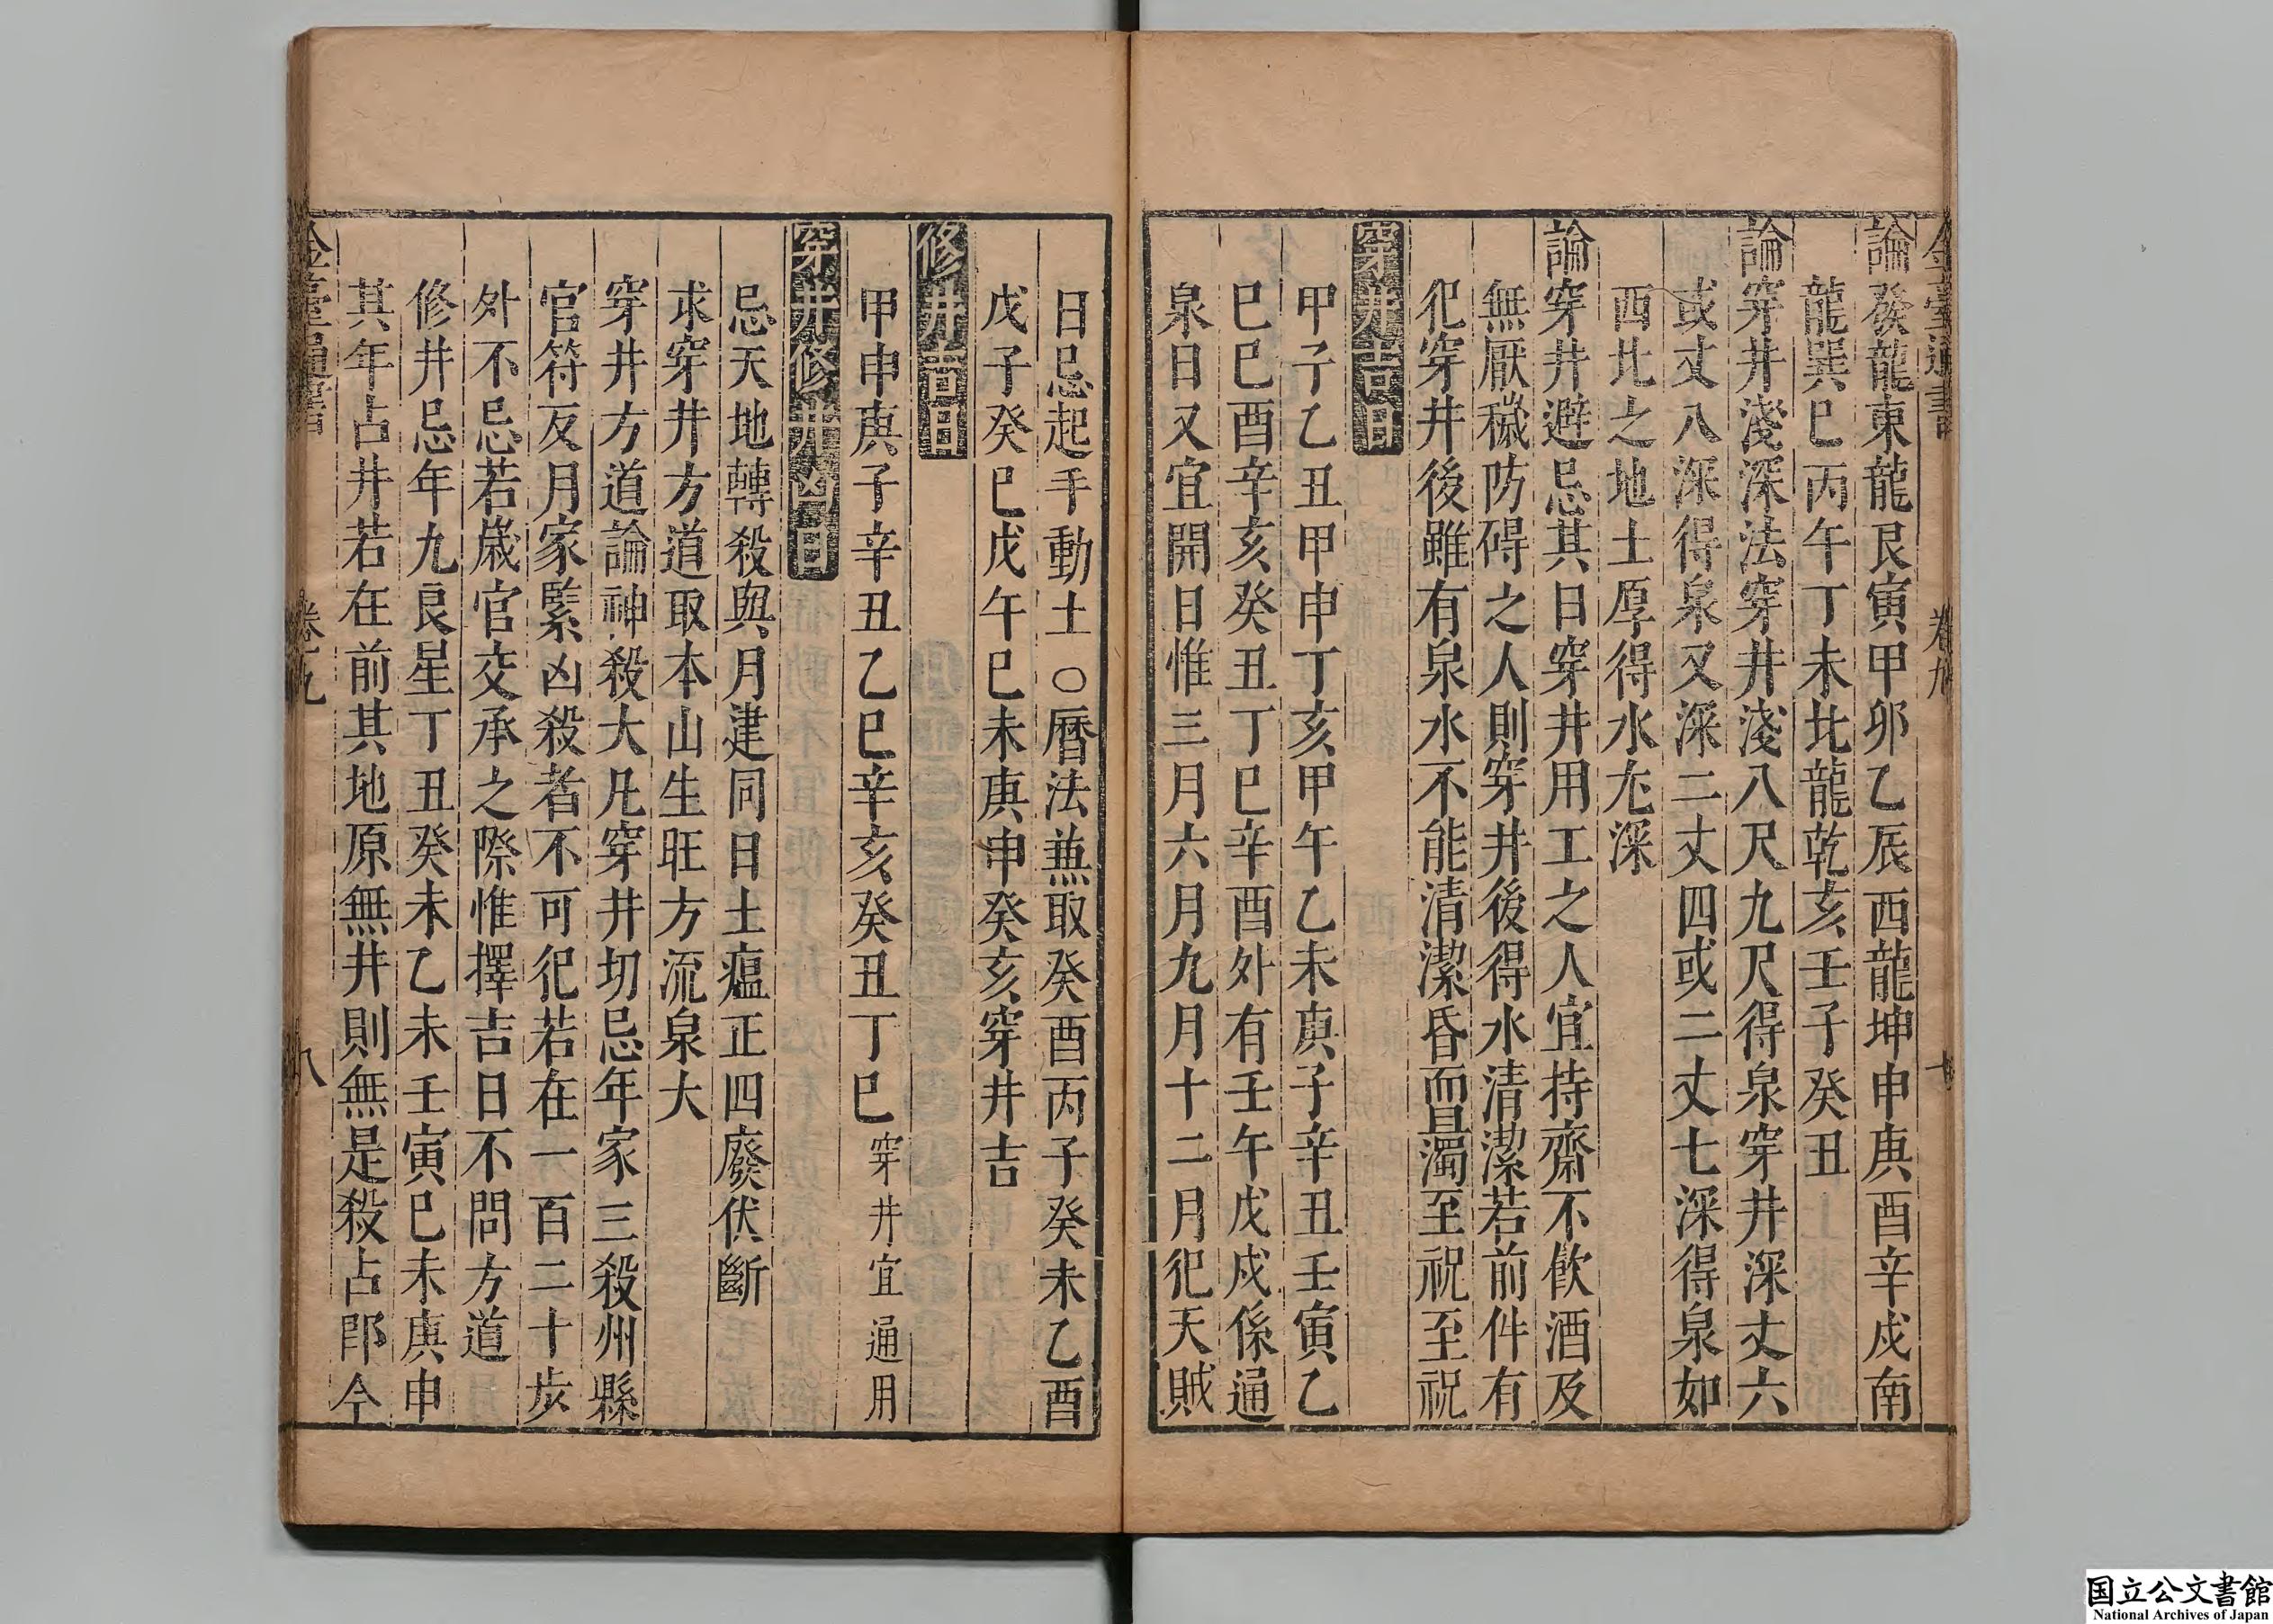 論發龍東龍艮寅甲卯乙辰西龍坤申庚酉辛戌南
龍巽巳丙午丁未北龍乾亥壬子癸丑
論穿井淺深法穿井淺八尺九尺得泉穿井深丈六
或丈八深得泉又深二丈四或二丈七深得泉如
西北之地土厚得水尤深
論穿井避忌其日穿井用工之人宜持齋不飲酒及
無厭穢防碍之人則穿井後得水清潔若前件有
犯穿井後雖有泉水不能清潔昏而且濁至祝至祝
穿井吉日
甲子乙丑甲申丁亥甲午乙未庚子辛丑壬寅乙
巳巳酉辛亥癸丑丁巳辛酉外有壬午戊戌係通
泉日又宜開日惟三月六月九月十二月犯天賊
日忌起手動土〇曆法兼取癸酉丙子癸未乙酉
戊子癸巳戊午巳未庚申癸亥穿井吉
修井吉日
甲申庚子辛丑乙巳辛亥癸丑丁巳穿井宜通用
穿井修井凶日
忌天地轉殺與月建同日土瘟正四廢伏斷
求穿井方道取本山生旺方流泉大
穿井方道論神殺大凡穿井切忌年家三殺州縣
官符反月家緊凶殺者不可犯若在一百二十步
外不忌若歲官交承之際惟擇吉日不問方道
修井忌年九良星丁丑癸未乙未壬寅巳未庚申
其年占井若在前其地原無井則無是殺占郎今
卷九
八
国立公文書館
National Archives of Japan